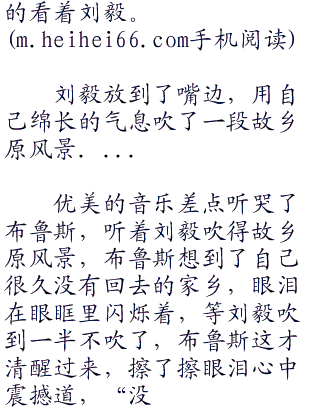 的看着刘毅。
(m.heihei66.com手机阅读)
刘毅放到了嘴边，用自
己绵长的气息吹了一段故乡
原风景．...
优美的音乐差点听哭了
布鲁斯，听着刘毅吹得故乡
原风景，布鲁斯想到了自己
很久没有回去的家乡，眼泪
在眼眶里闪烁着，等刘毅吹
到一半不吹了，布鲁斯这才
清醒过来，擦了擦眼泪心中
震撼道，“没